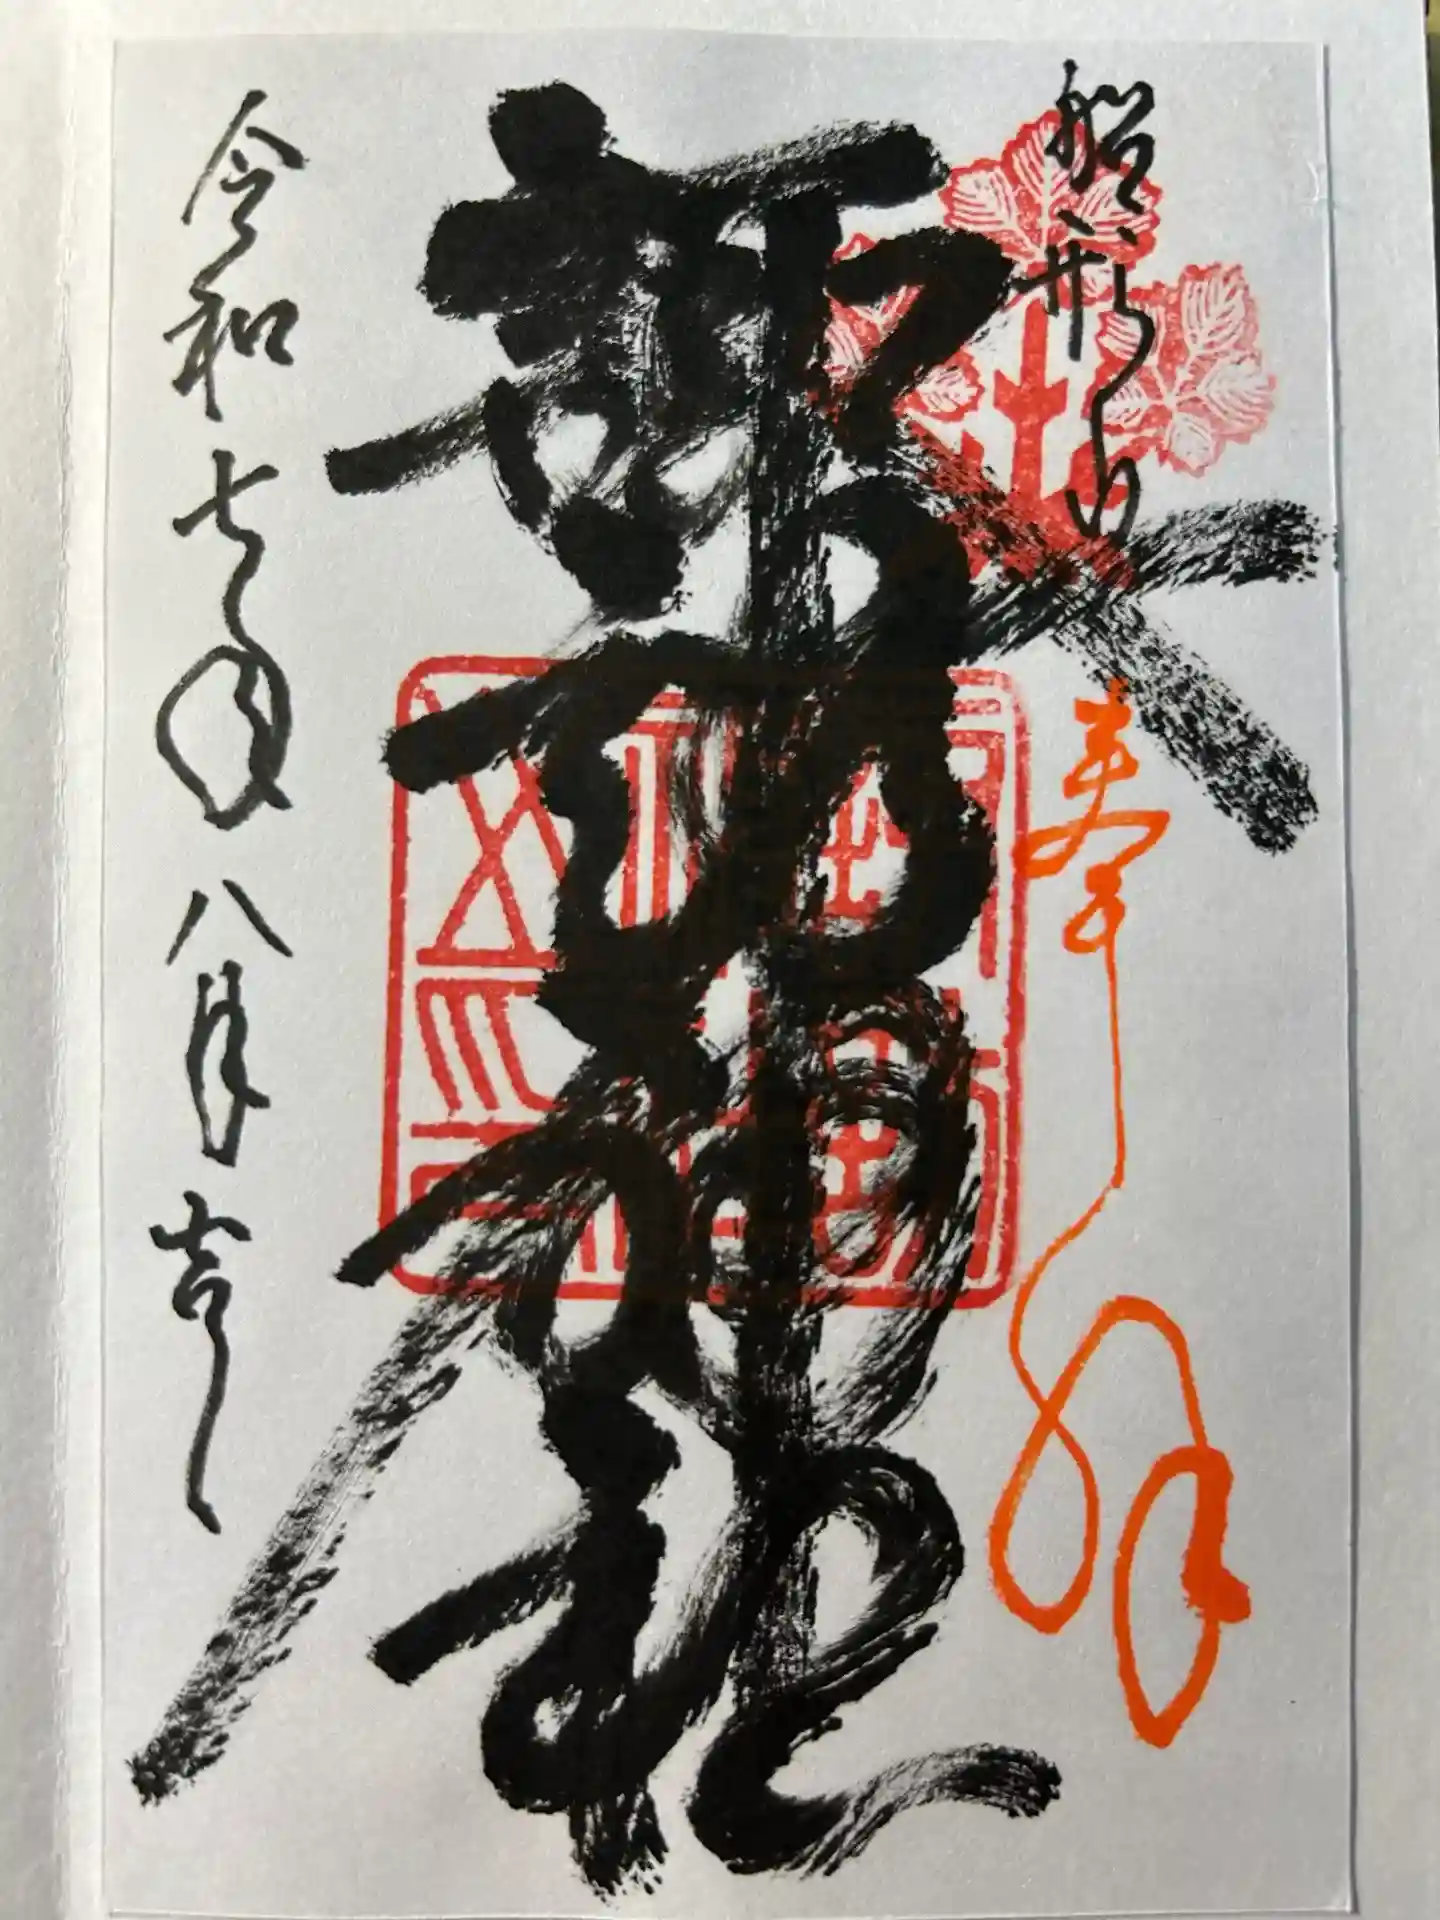 船形山
奉拝
諏訪神社
令和七年八月吉日